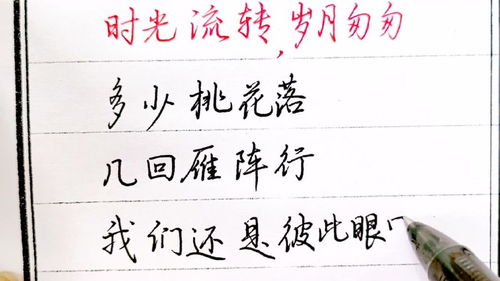 时光流转,岁月匆匆
多少桃花落
几回雁阵行
我们还是彼此眼